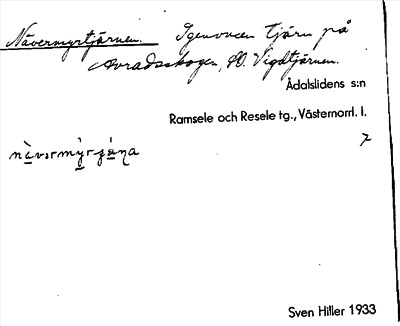 Nävermyrtjärnen. Igenvuxen tjärn på
Avradsskogen, SO. Vigdtjärnen.
Ådalslidens s:n
Ramsele och Resele tg., Västernorrl. l.
7
Sven Hiller 1933